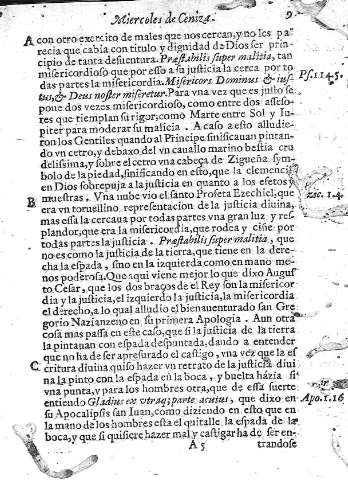 Miercoles de Ceniza. 9
A con otro exercito de males que nos cercan, y no les pa
recia que cabia con titulo y dignidad de Dios ser prin
cipio de tanta desuentura. Præstabilis super malitia, tan
misericordioso que por esso a su justicia la cerca por to
das partes la misericordia. Misericors Dominus & ius- Ps.114.5.
tus, & Deus noster miseretur. Para vna vez que es justo se
pone dos vezes misericordioso, como entre dos asseso-
res que tiemplan su rigor, como Marte entre Sol y Iu
piter para moderar su malicia. A caso a esto alludie-
ron los Gentiles quando al Principe sinificauan pintan-
do vn cetro, y debaxo del vn cauallo marino bestia cru
delissima, y sobre el cetro vna cabeça de Zigueña sym-
bolo de la piedad, sinificando en esto, que la clemencia
en Dios sobrepuja a la justicia en quanto a los efetos y
muestras. Vna nube vio el santo Profeta Ezechiel, que
B era vn toruellino, representacion de la justicia diuina, 1.4.
mas essa la cercaua por todas partes vna gran luz y res-
plandor, que era la misericordia, que rodea y ciñe por
todas partes la justicia. Præstabilis super malitia, que
no es como la justicia de la tierra, que tiene en la dere-
cha la espada, sino en la izquierda como en mano me-
nos poderosa. Que aqui viene mejor lo que dixo Augus
to Cesar, que los dos braços de el Rey son la misericor
dia y la justicia, el izquierdo la justicia, la misericordia
el derecho, a lo qual alludio el bienauenturado san Gre
gorio Nazianzeno en su primera Apologia. Aun otra
cosa mas passa en este caso, que si la justicia de la tierra
la pintauan con espada despuntada, dando a entender
que no ha de ser apresurado el castigo, vna vez que la es
C critura diuina quiso hazer vn retrato de la justicia diui
na la pinto con la espada en la boca, y buelta házia si
vna punta, y para los hombres otra, que de essa suerte
entiendo Gladius ex vtraq; parte acutus, que dixo en Apo.1.16
su Apocalipsis san Iuan, como diziendo en esto que en
la mano de los hombres esta el quitalle la espada de la
boca, y que si quisiere hazer mal y castigar ha de ser en-
A 5 trandose